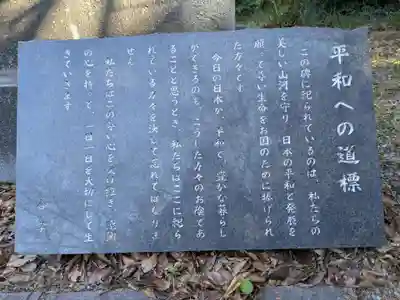 平和への道標
この碑に祀られているのは、私たちの
美しい山河を守り、日本の平和と発展を
願って尊い生命をお国のために捧げられ
た方々です
今日の日本が、平和で、豊かな暮らし
ができるのも、こうした方々のお陰であ
ることを思うとき、私たちはここに祀ら
れている方々を決して忘れてはなりま
せん
私たちはこの尊い心を受け継ぎ、感謝
の心を持って、一日一日を大切にして生
きていきます